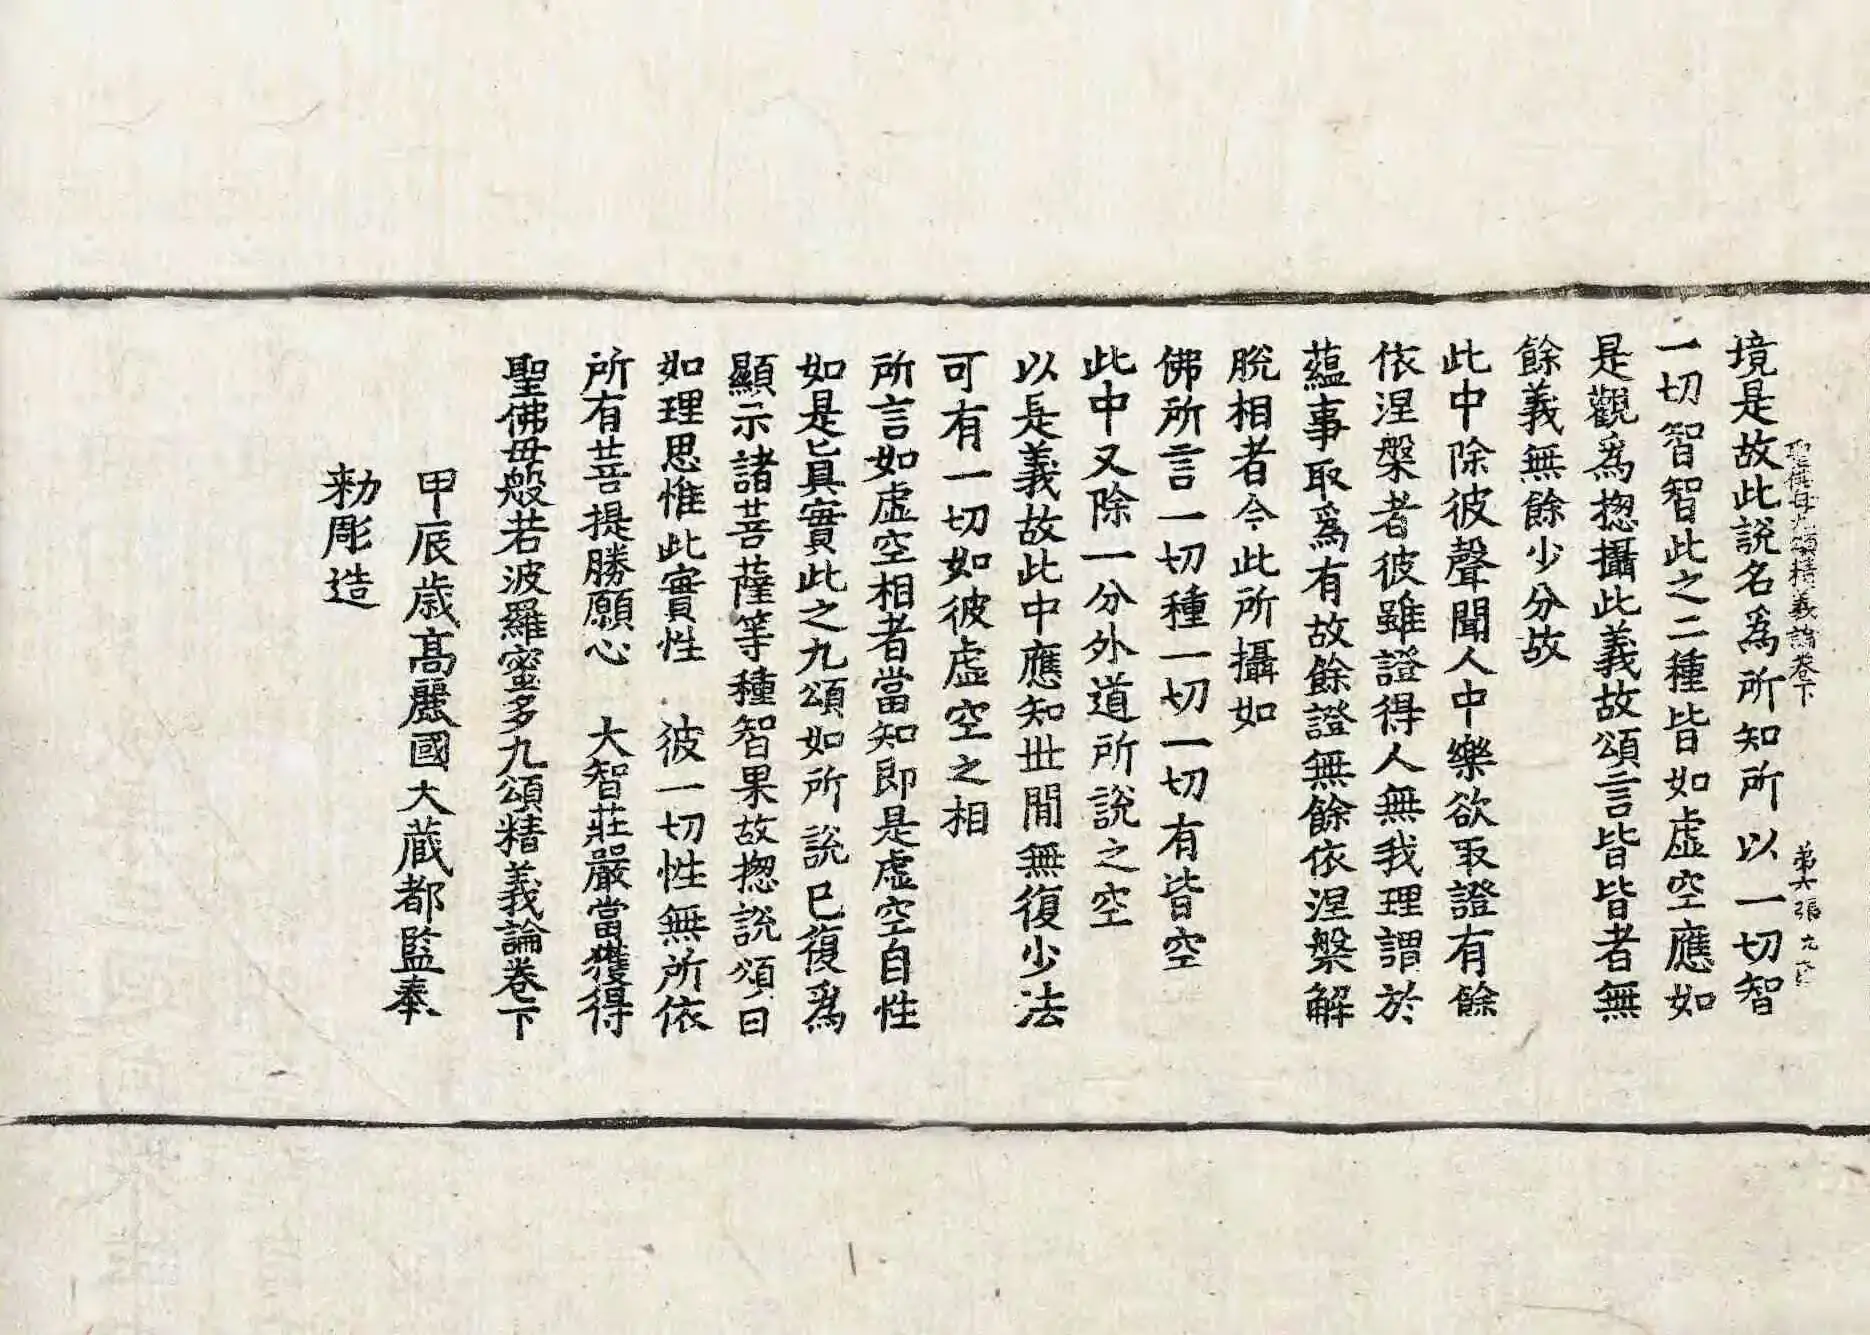 聖佛母九頌精義論卷下　第六張
境是故此說名為所知所以一切智
一切智智此之二種皆如虛空應如
是觀爲揔攝此義故頌言皆皆者無
餘義無餘少分故
此中除彼聲聞人中樂欲取證有餘
依涅槃者彼雖證得人無我理謂於
蕴事取爲有故餘證無餘依涅槃解
脫相者令此所攝如
佛所言一切種一切一切有皆空
此中又除一分外道所說之空
以是義故此中應知世間無復少法
可有一切如彼虛空之相
所言如虛空相者當知即是虛空自性
如是眞實此之九頌如所說已復爲
顯示諸菩薩等種智果故揔說頌曰
如理思惟此實性　彼一切性無所依
所有菩提勝願心　大智莊嚴當獲得
聖佛母般若波羅蜜多九頌精義論卷下
甲辰歲高麗國大藏都監奉
勑彫造